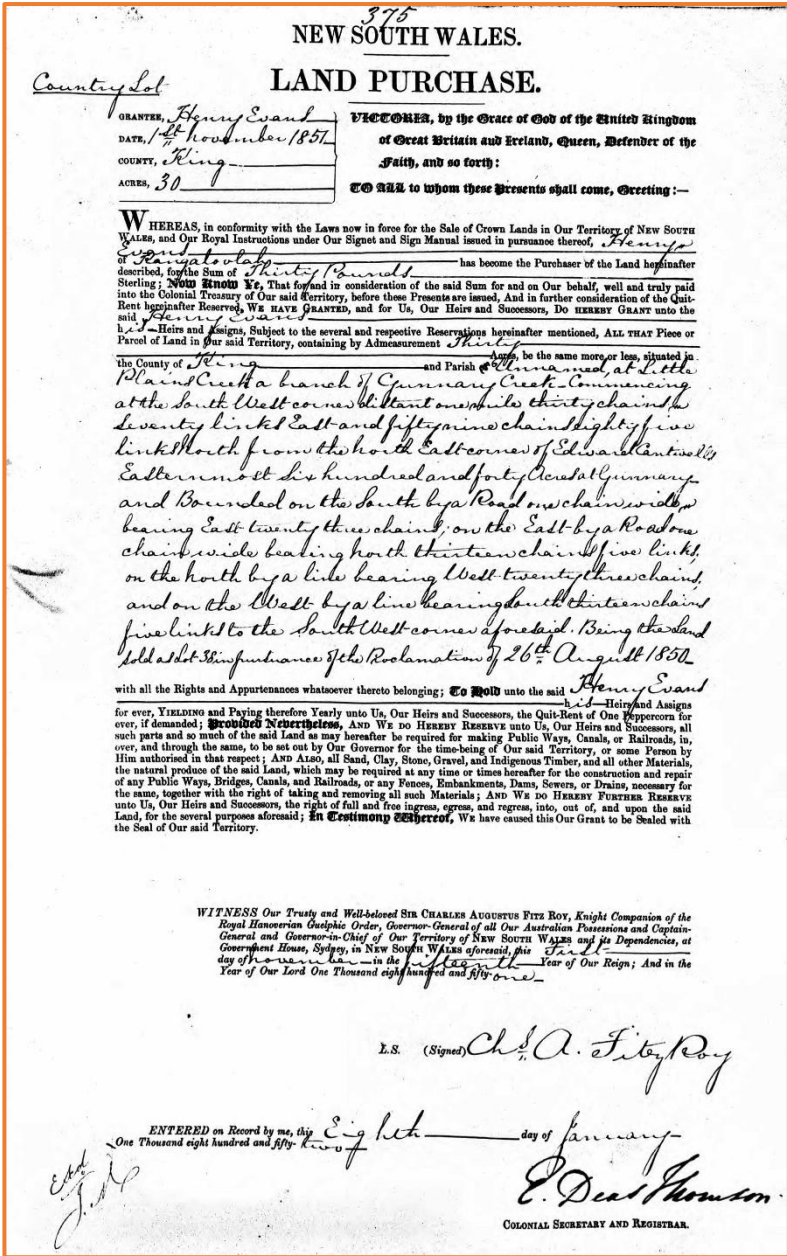 375
NEW SOUTH WALES.
LAND PURCHASE.
Country Lot
GRANTEE, Henry Evans
DATE, 1st November 1851
COUNTY, King
ACRES, 30
VICTORIA, by the Grace of God of the United Kingdom
of Great Britain and Ireland, Queen, Defender of the
Faith, and so forth:
TO ALL to whom these Presents shall come, Greeting:—
WHEREAS, in conformity with the Laws now in force for the Sale of Crown Lands in Our Territory of NEW SOUTH
WALES, and Our Royal Instructions under Our Signet and Sign Manual issued in pursuance thereof, Henry
Evans
of has become the Purchaser of the Land hereinafter
described, for the Sum of Thirty Pounds
Sterling; Now Know Ye, That for and in consideration of the said Sum for and on Our behalf, well and truly paid
into the Colonial Treasury of Our said Territory, before these Presents are issued, And in further consideration of the Quit-
Rent hereinafter Reserved, WE HAVE GRANTED, and for Us, Our Heirs and Successors, DO HEREBY GRANT unto the
said Henry Evans
his Heirs and Assigns, Subject to the several and respective Reservations hereinafter mentioned, ALL THAT Piece or
Parcel of Land in Our said Territory, containing by Admeasurement Thirty
Acres, be the same more or less, situated in
the County of King and Parish of Unnamed, at Little
Plains Creek a branch of Gunnary Creek - Commencing
at the South West corner distant one mile thirty chains
seventy links East and fifty nine chains eighty five
links North from the North East corner of Edward Cantwell's
Easternmost Six hundred and forty Acres at Gunnary
and Bounded on the South by a Road one chain wide
bearing East twenty three chains; on the East by a Road one
chain wide bearing North thirteen chains five links,
on the North by a line bearing West twenty three chains,
and on the West by a line bearing South thirteen chains
five links to the South West corner aforesaid. Being the Land
sold as Lot 38 in pursuance of the Proclamation of 26th August 1850
with all the Rights and Appurtenances whatsoever thereto belonging; To Hold unto the said Henry Evans
his Heirs and Assigns
for ever, YIELDING and Paying therefore Yearly unto Us, Our Heirs and Successors, the Quit-Rent of One Peppercorn for
ever, if demanded; Provided Nevertheless, AND WE DO HEREBY RESERVE unto Us, Our Heirs and Successors, all
such parts and so much of the said Land as may hereafter be required for making Public Ways, Canals, or Railroads, in,
over, and through the same, to be set out by Our Governor for the time-being of Our said Territory, or some Person by
Him authorised in that respect; AND ALSO, all Sand, Clay, Stone, Gravel, and Indigenous Timber, and all other Materials,
the natural produce of the said Land, which may be required at any time or times hereafter for the construction and repair
of any Public Ways, Bridges, Canals, and Railroads, or any Fences, Embankments, Dams, Sewers, or Drains, necessary for
the same, together with the right of taking and removing all such Materials; AND WE DO HEREBY FURTHER RESERVE
unto Us, Our Heirs and Successors, the right of full and free ingress, egress, and regress, into, out of, and upon the said
Land, for the several purposes aforesaid; In Testimony Whereof, WE have caused this Our Grant to be Sealed with
the Seal of Our said Territory.
WITNESS Our Trusty and Well-beloved SIR CHARLES AUGUSTUS FITZ ROY, Knight Companion of the
Royal Hanoverian Guelphic Order, Governor-General of all Our Australian Possessions and Captain-
General and Governor-in-Chief of Our Territory of NEW SOUTH WALES and its Dependencies, at
Government House, Sydney, in NEW SOUTH WALES aforesaid, this First
day of November in the fifteenth Year of Our Reign; And in the
Year of Our Lord One Thousand eight hundred and fifty-one
L.S. (Signed) Chs. A. Fitz Roy
ENTERED on Record by me, this Eighth day of January
One Thousand eight hundred and fifty-two
E. Deas Thomson
COLONIAL SECRETARY AND REGISTRAR.